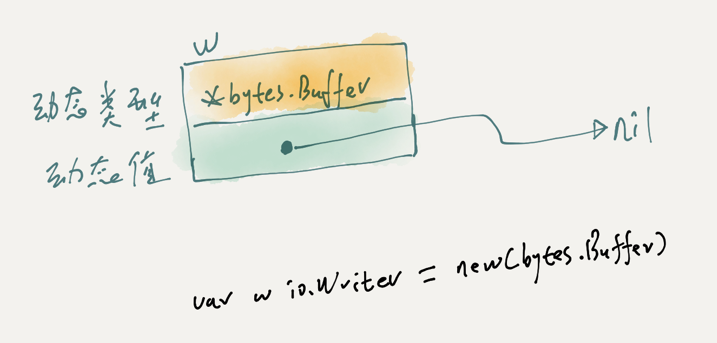 w
动态类型 *bytes.Buffer
动态值 nil
var w io.Writer = new(bytes.Buffer)